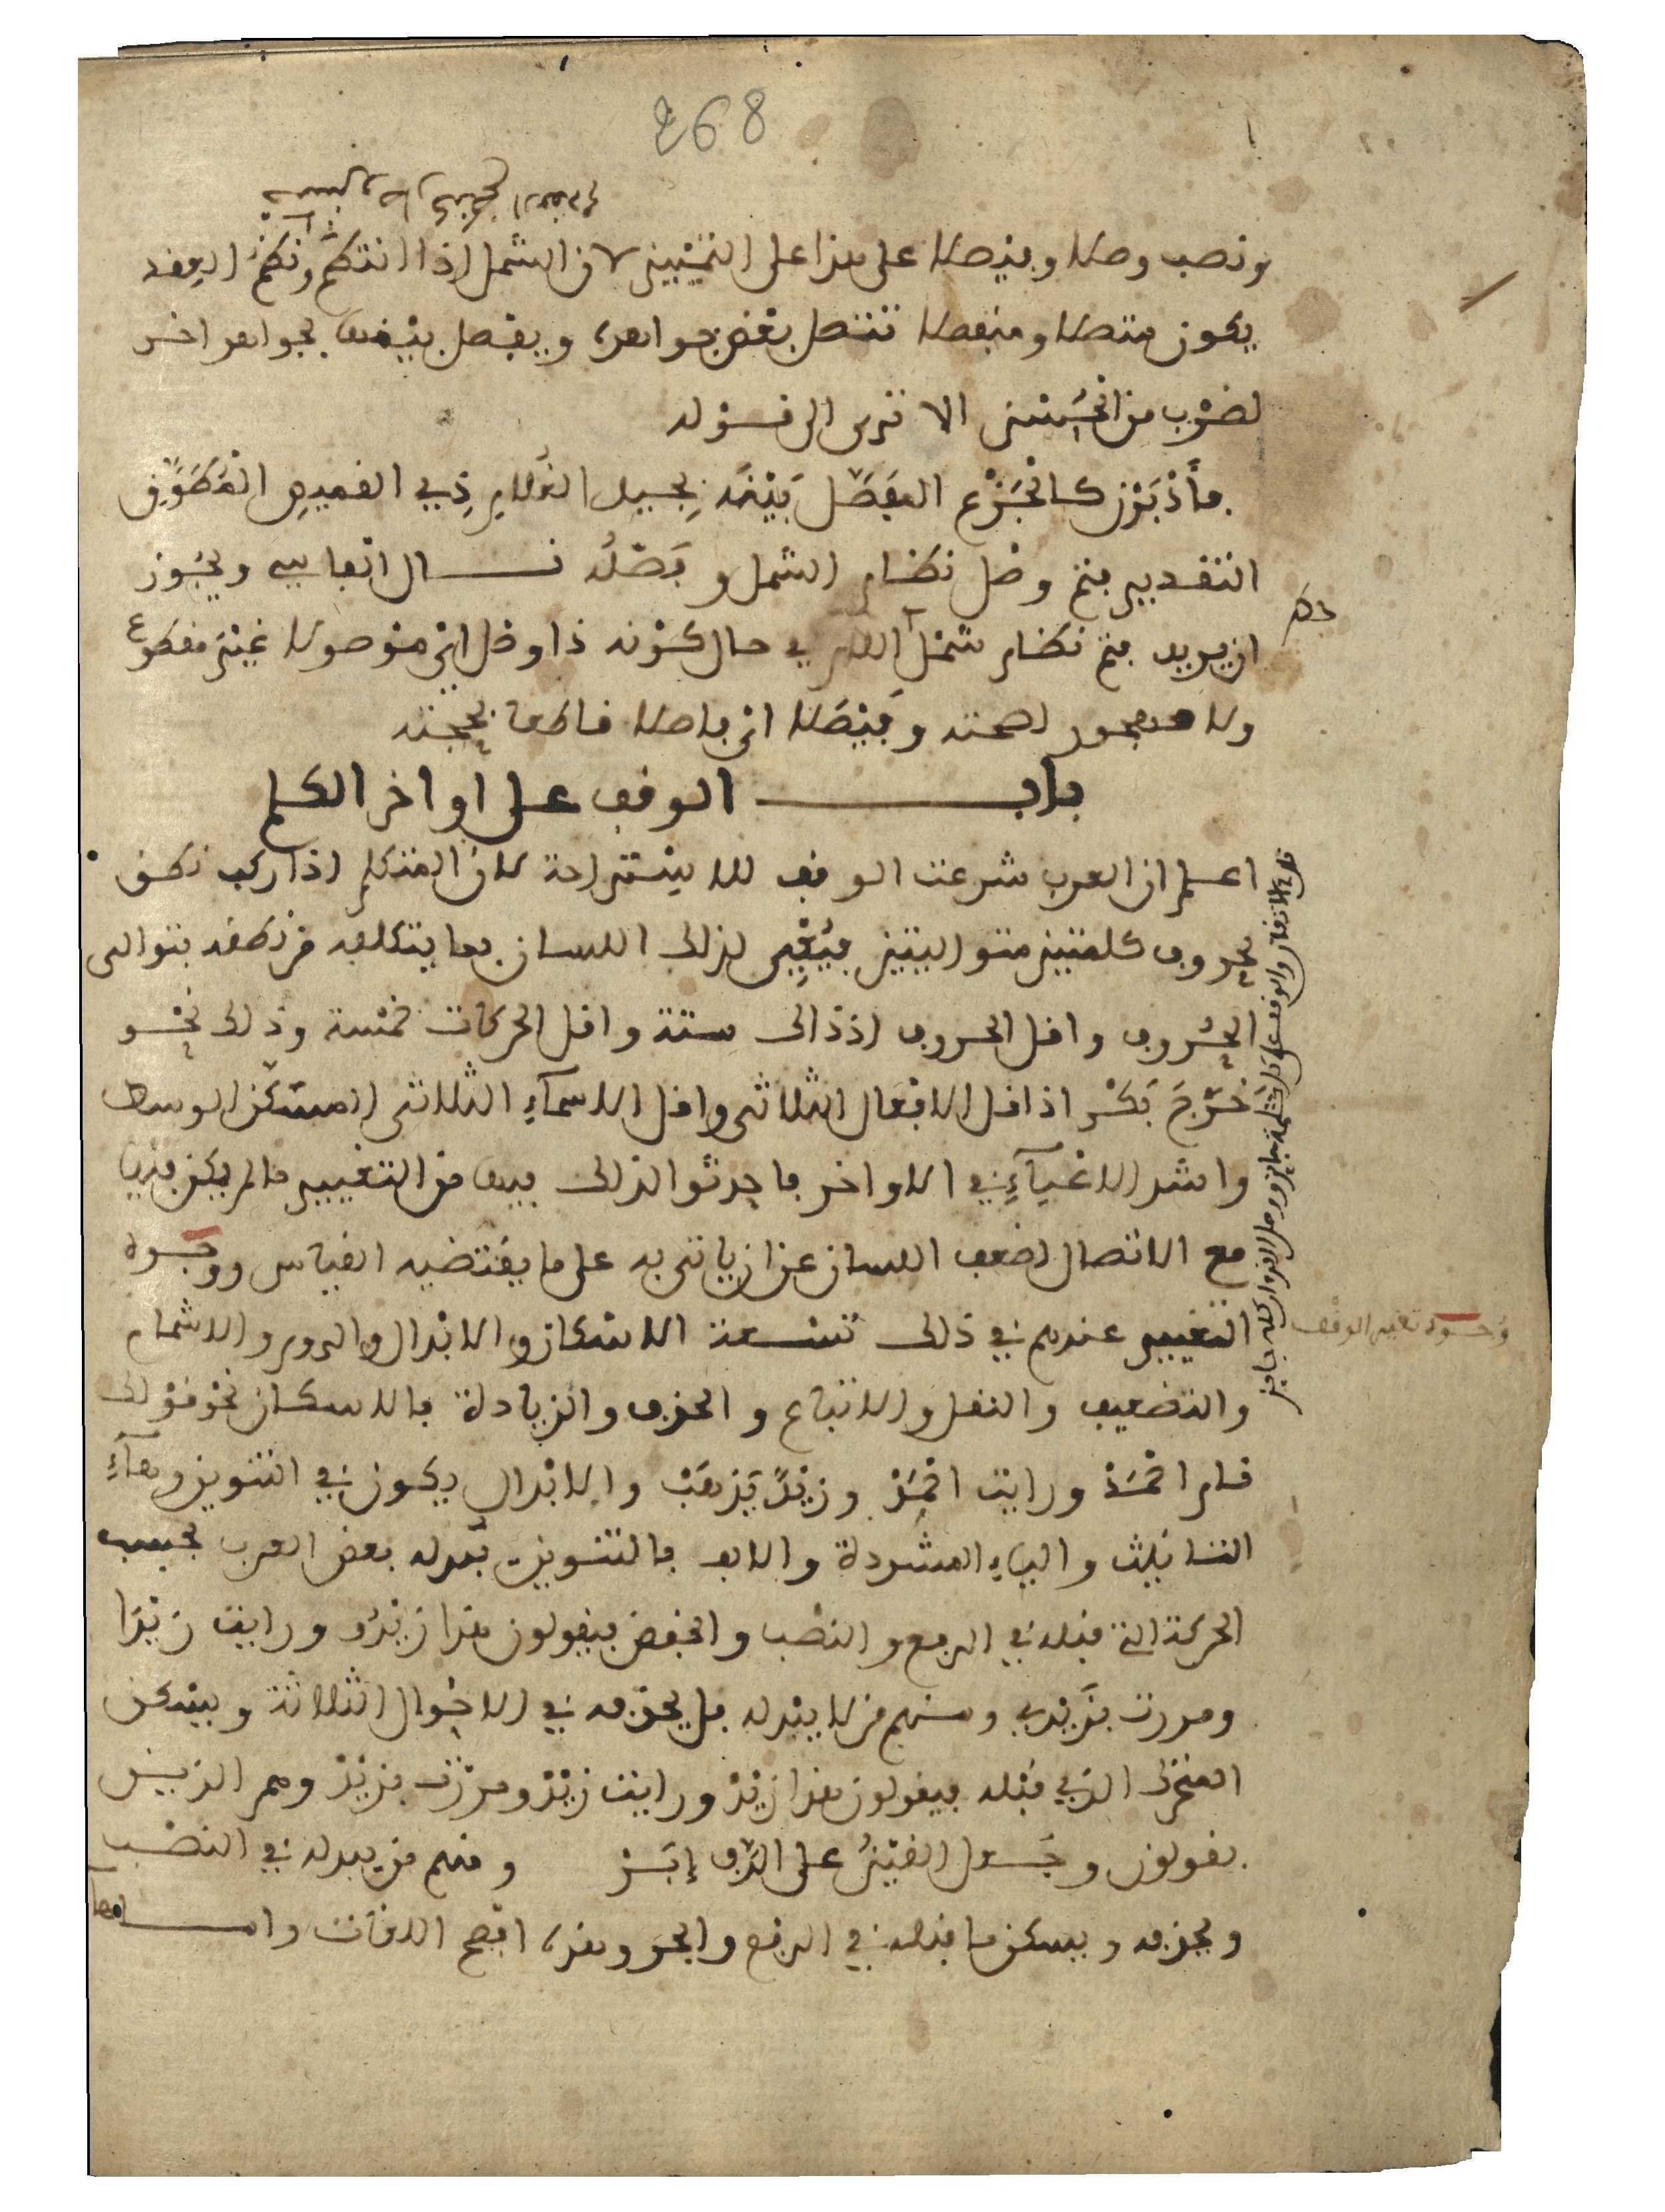 268
ونصب وصلا وفيصلا على هذا على التمييز لان الشمل اذا انتظم ونظم العقد
يكون متصلا ومنفصلا تتصل بعض جواهره ويفصل بينها بجواهر اخر
لضرب من التحسين الا ترى الى قوله
فأدبرن كالجزع المفصل بينه بجيد الغلام ذي القميص المطوق
التقدير فتم وصل نظام الشمل وفصله قال الفاسي ويجوز
ان يريد فتم نظام شمل اللام في حال كونه ذا وصل اي موصولا غير مقطوع
ولا مهجور لصحته وفيصلا اي فاصلا قاطعا بحجته
باب الوقف على اواخر الكلم
اعلم ان العرب شرعت الوقف للاستراحة لان المتكلم اذا ركب نطق
بحروف كلمتين متواليتين فيعيى لذلك اللسان بما يتكلفه من نطقه بتوالى
الحروف واقل الحروف اذ ذاك ستة واقل الحركات خمسة وذلك نحو
خرج بكر اذ اقل الافعال الثلاثى واقل الاسماء الثلاثى المسكن الوسط
واشد الاعياء في الاواخر فاحدثوا لذلك فيها من التغيير ما لم يكن فيها
مع الاتصال لضعف اللسان عن ان ياتي به على ما يقتضيه القياس ووجوه
التغيير عندهم في ذلك تسعة الاسكان والابدال والروم والاشمام
والتضعيف والنقل والاتباع والحذف والزيادة فالاسكان نحو قولك
قام احمد ورايت احمد وزيد يذهب والابدال يكون في التنوين وهاء
التانيث والياء المشددة والالف فالتنوين تبدله بعض العرب بحسب
الحركة التي قبله في الرفع والنصب والخفض فيقولون هذا زيدو ورايت زيدا
ومررت بزيدي ومنهم من لا يبدله بل يحذفه في الاحوال الثلاثة ويسكن
المتحرك الذي قبله فيقولون هذا زيد ورايت زيد ومررت بزيد وهم الذين
يقولون وجعل القين على الدف إبر ومنهم من يبدله في النصب
ويحذفه ويسكن ما قبله في الرفع والجر وهذه افصح اللغات وامـا
وجوه تغيير الوقف